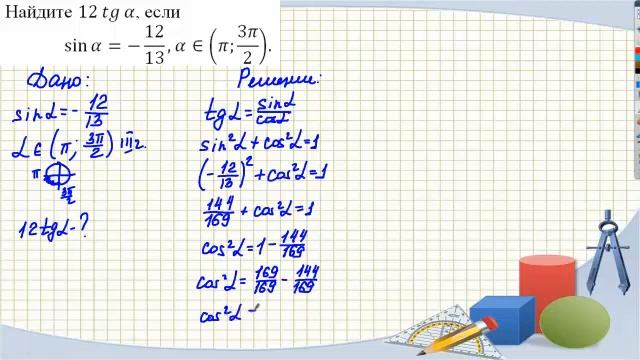 Найдите 12 tg α, если
sin α = −12/13, α ∈ (π; 3π/2).
Дано:
sin α = − 12/13
α ∈ (π; 3π/2) III ч.
π
3π/2
12 tg α - ?
Решение:
tg α = sin α / cos α
sin²α + cos²α = 1
(− 12/13)² + cos²α = 1
144/169 + cos²α = 1
cos²α = 1 − 144/169
cos²α = 169/169 − 144/169
cos²α -